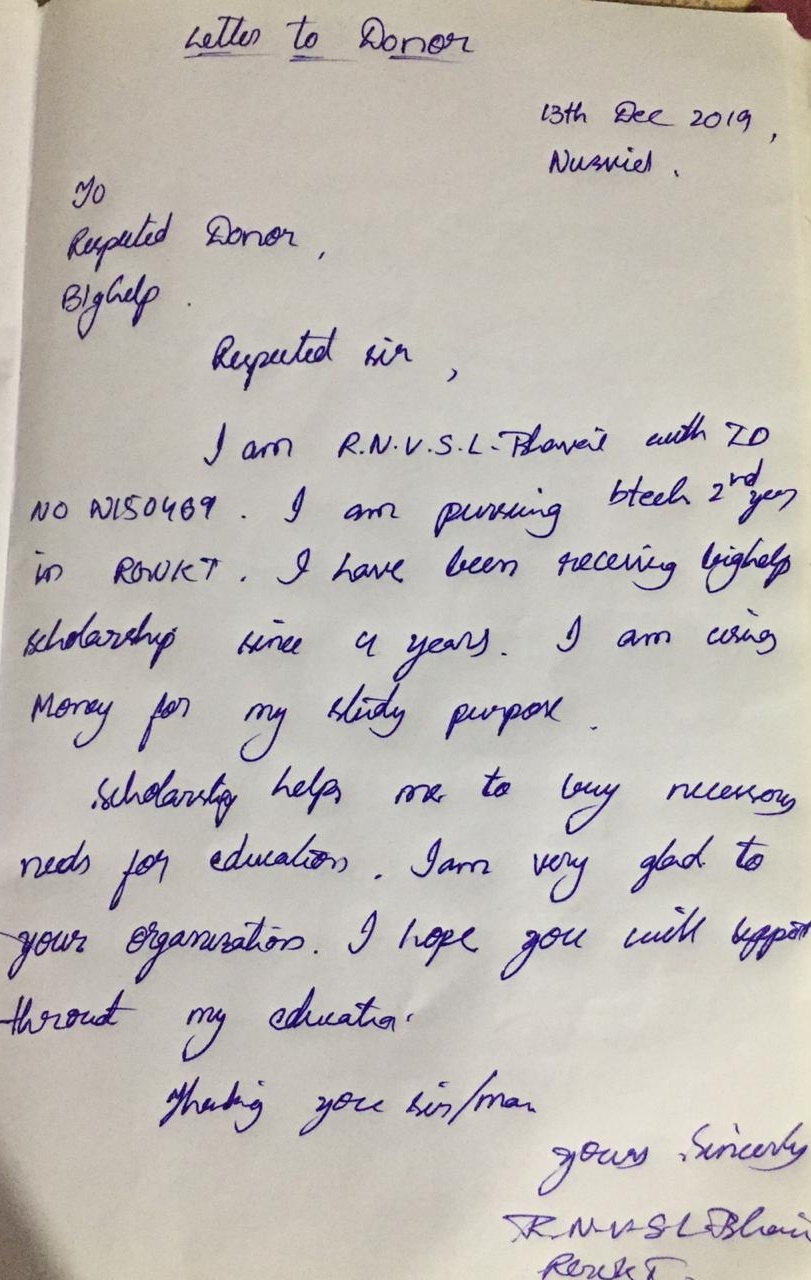 Letter to Donor
13th Dec 2019,
Nuzvid.
To
Respected Donor,
Bighelp.
Respected sir,
I am R.N.V.S.L. with ID
NO N150469. I am pursuing btech 2nd year
in RGUKT. I have been receving bighelp
scholarship since 4 years. I am using
Money for my study purpose.
Scholarship helps me to buy necessary
needs for education. I am very glad to
your organization. I hope you will support
throut my education.
Thanking you sir/mam
yours Sincerly
R.N.V.S.L.
RGUKT